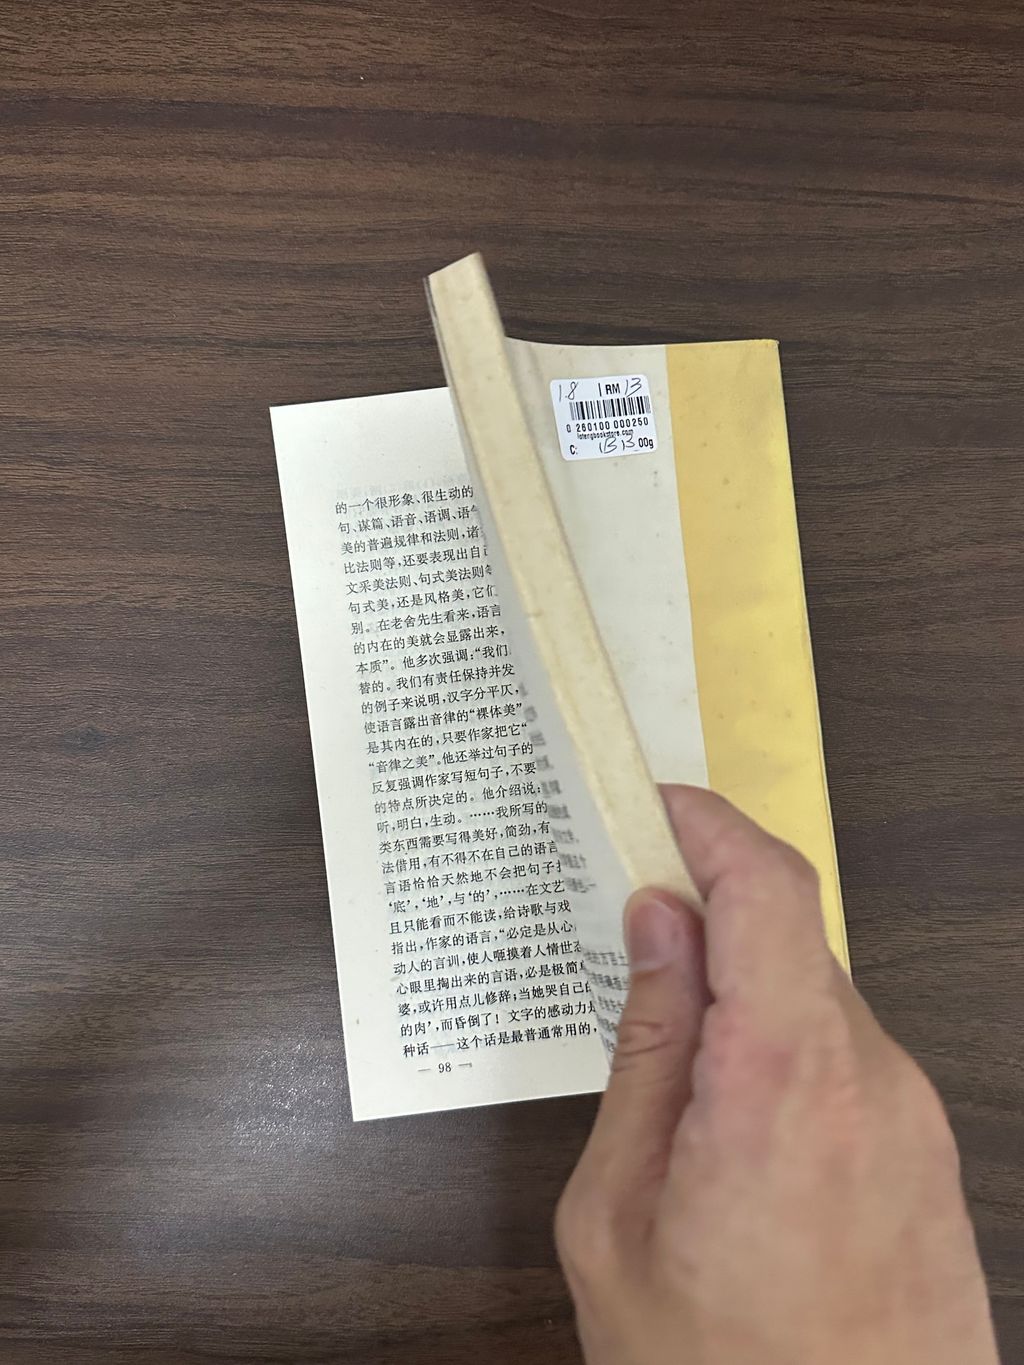 的一个很形象、很生动的
句、谋篇、语音、语调、语
美的普遍规律和法则,诸
比法则等,还要表现出自
文采美法则、句式美法则
句式美,还是风格美,它们
别。在老舍先生看来,语言
的内在的美就会显露出来,
本质”。他多次强调:“我们
替的。我们有责任保持并发
的例子来说明,汉字分平仄,
使语言露出音律的“裸体美”
是其内在的,只要作家把它“
“音律之美”。他还举过句子的
反复强调作家写短句子,不要
的特点所决定的。他介绍说:
听,明白,生动。……我所写的
类东西需要写得美好,简劲,有
法借用,有不得不在自己的语言
言语恰恰天然地不会把句子
‘底’,‘地’,与‘的’,……在文艺
且只能看而不能读,给诗歌与戏
指出,作家的语言,“必定是从心
动人的言训,使人咂摸着人情世态
心眼里掏出来的言语,必是极简单
婆,或许用点儿修辞;当她哭自己的
的肉’,而昏倒了!文字的感动力
种话——这个话是最普通常用的,
— 98 —
18 | RM 13
0 260100 000250
C: 13.00g